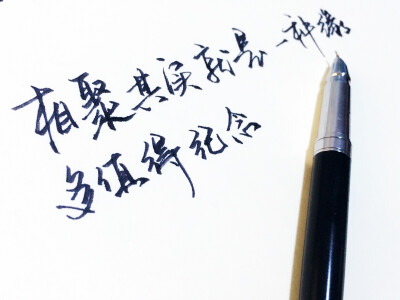 相聚其实就是一种缘
多值得纪念